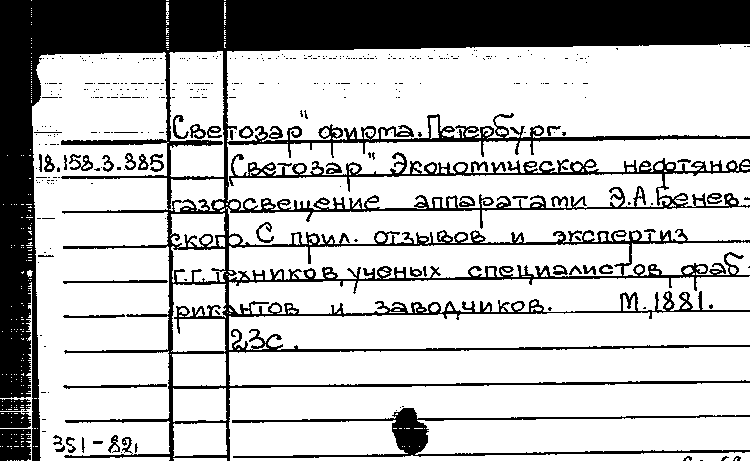 Светозар", фирма. Петербург.
18.158.3.385 "Светозар". Экономическое нефтяное
газоосвещение аппаратами Э.А.Бенев-
ского. С прил. отзывов и экспертиз
г.г. техников, ученых специалистов, фаб-
рикантов и заводчиков. М., 1881.
23с.
351-82